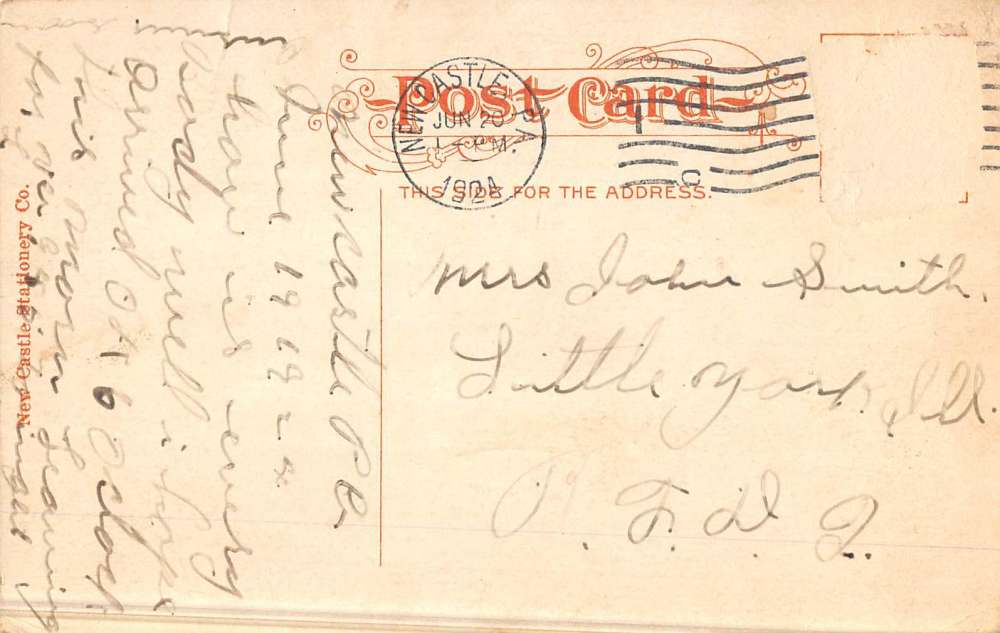 Post Card
NEW CASTLE, PA.
JUN 20
1 - PM.
1924
THIS SIDE FOR THE ADDRESS.
Mrs John Smith.
Little York Ill.
R. F. D. 2.
Newcastle Pa.
June 19 192
how is every
body well i hope
Arrived OK 6 Oclock
this morn
New Castle Stationery Co.